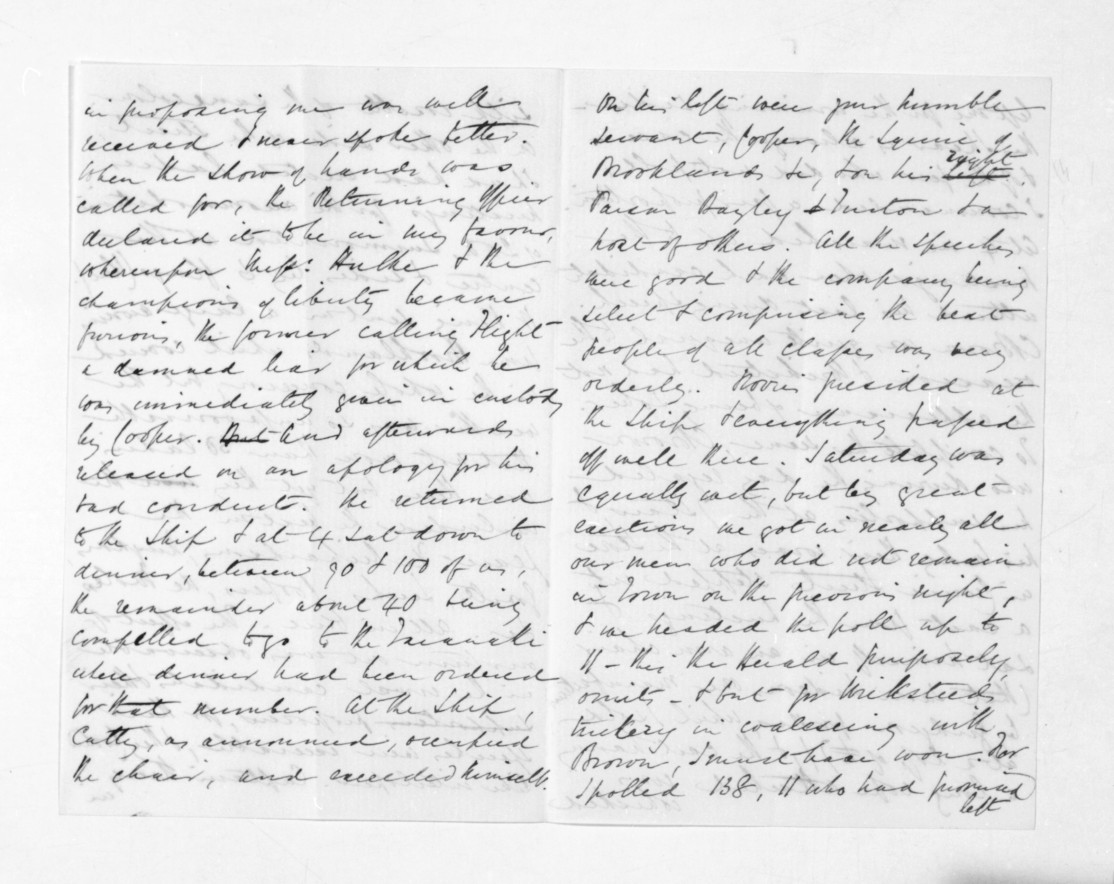 in proposing me was well
received & never spoke better.
When the show of hands was
called for, the Returning Officer
declared it to be in my favour,
whereupon Messrs. Hulke & the
champions of liberty became
furious, the former calling Flight
a damned liar for which he
was immediately given in custody
by Cooper. But And afterwards
released on an apology for his
bad conduct. We returned
to the Ship & at 4 sat down to
dinner, between 90 & 100 of us,
the remainder about 40 being
compelled to go to the Taranaki
where dinner had been ordered
for that number. At the Ship,
Cutty, as announced, occupied
the chair, and exceeded himself.
On his left were your humble
servant, Cooper, the Squire of
Brooklands &c, & on his left right
Parson Bayley & Turton & a
host of others. All the speeches
were good & the company being
select & comprising the best
people of all classes was very
orderly. Norris presided at
the Ship & everything passed
off well there. Saturday was
equally wet, but by great
exertions we got in nearly all
our men who did not remain
in Town on the previous night,
& we headed the poll up to
11 - this the Herald purposely
omits - & but for Wicksteed's
trickery in coalescing with
Brown, I must have won. For
I polled 138, 11 who had promised
left